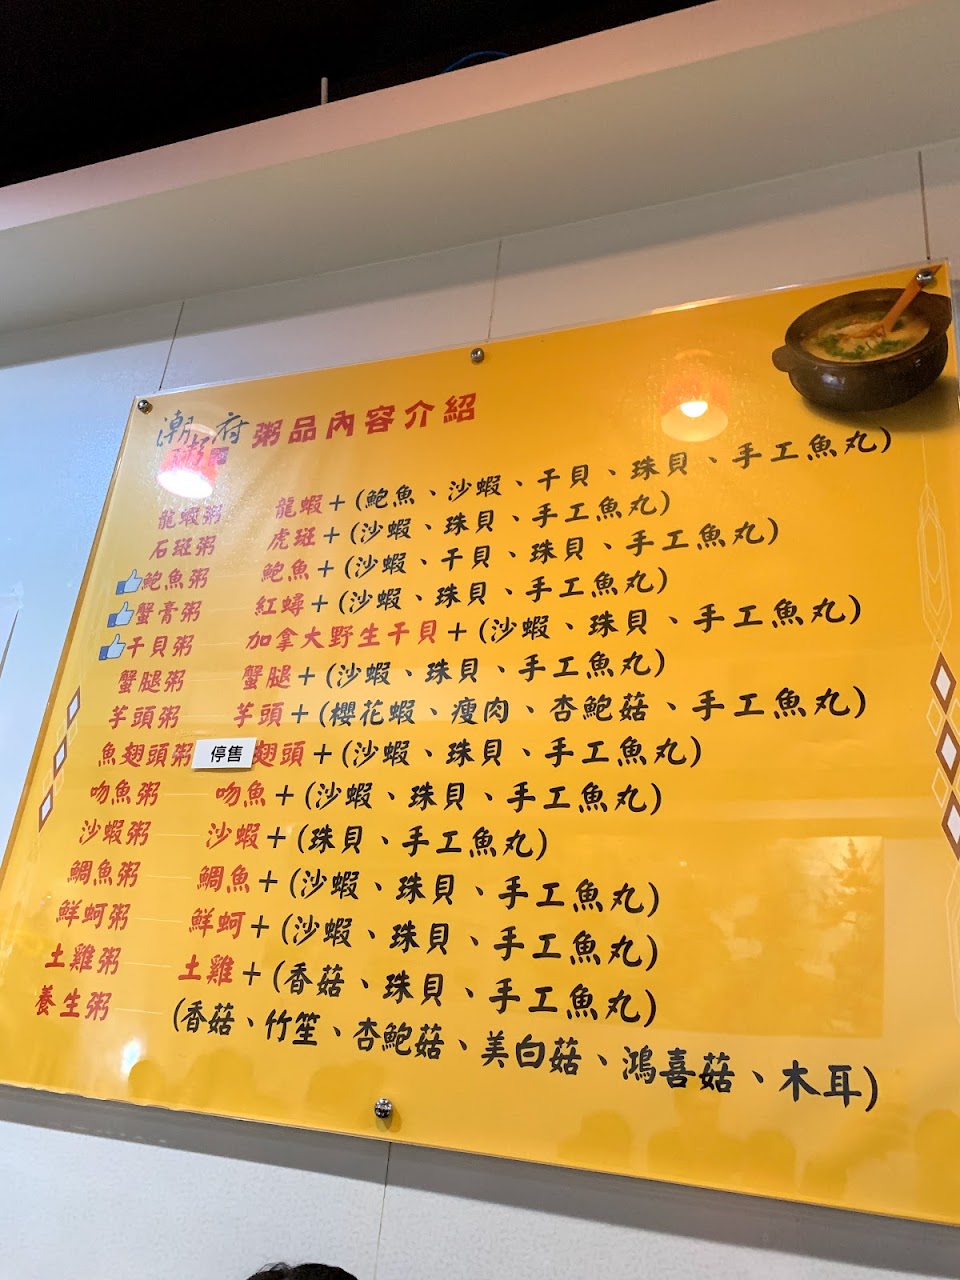 潮粥府 粥品內容介紹
龍蝦粥 龍蝦+(鮑魚、沙蝦、干貝、珠貝、手工魚丸)
石斑粥 虎斑+(沙蝦、珠貝、手工魚丸)
鮑魚粥 鮑魚+(沙蝦、干貝、珠貝、手工魚丸)
蟹膏粥 紅蟳+(沙蝦、珠貝、手工魚丸)
干貝粥 加拿大野生干貝+(沙蝦、珠貝、手工魚丸)
蟹腿粥 蟹腿+(沙蝦、珠貝、手工魚丸)
芋頭粥 芋頭+(櫻花蝦、瘦肉、杏鮑菇、手工魚丸)
魚翅頭粥 停售 翅頭+(沙蝦、珠貝、手工魚丸)
吻魚粥 吻魚+(沙蝦、珠貝、手工魚丸)
沙蝦粥 沙蝦+(珠貝、手工魚丸)
鯛魚粥 鯛魚+(沙蝦、珠貝、手工魚丸)
鮮蚵粥 鮮蚵+(沙蝦、珠貝、手工魚丸)
土雞粥 土雞+(香菇、珠貝、手工魚丸)
養生粥 (香菇、竹笙、杏鮑菇、美白菇、鴻喜菇、木耳)